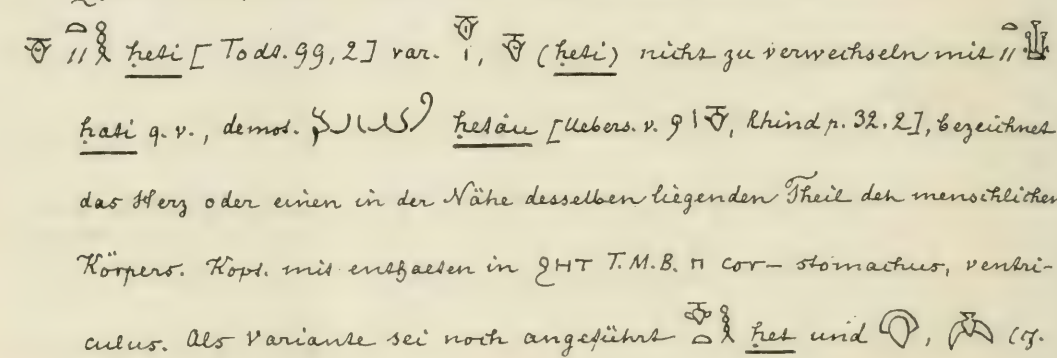 ḥeti [Todt. 99, 2] var. , (ḥeti) nicht zu verwechseln mit
ḥati q. v., demot. ḥetàu [Uebers. v. Rhind p. 32. 2], bezeichnet
das Herz oder einen in der Nähe desselben liegenden Theil deh menschlichen
Körpers. Kopt. mit enthalten in ϩⲏⲧ T. M. B. ⲡ cor – stomachus, ventri-
culus. Als Variante sei noch angeführt ḥet und , (cf.